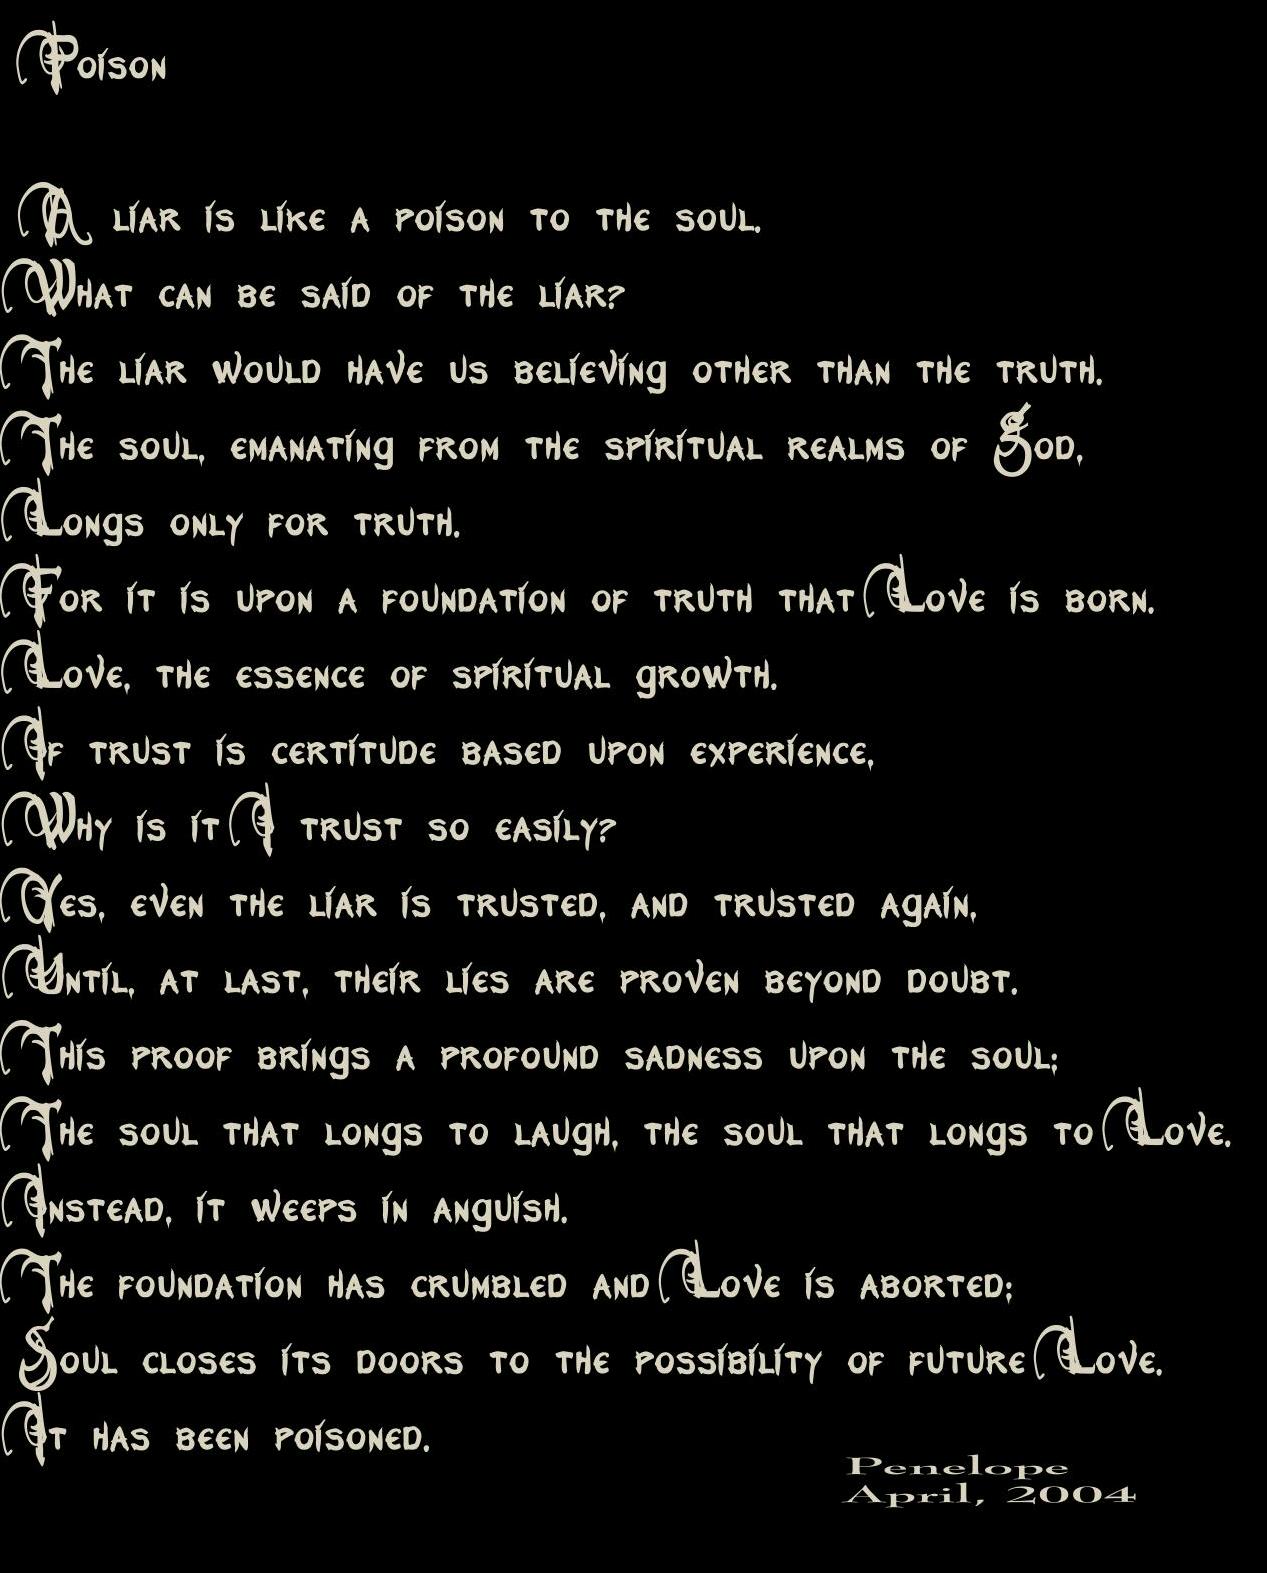 Poison
A liar is like a poison to the soul.
What can be said of the liar?
The liar would have us believing other than the truth.
The soul, emanating from the spiritual realms of God,
Longs only for truth.
For it is upon a foundation of truth that Love is born.
Love, the essence of spiritual growth.
If trust is certitude based upon experience,
Why is it I trust so easily?
Yes, even the liar is trusted, and trusted again,
Until, at last, their lies are proven beyond doubt.
This proof brings a profound sadness upon the soul;
The soul that longs to laugh, the soul that longs to Love.
Instead, it weeps in anguish.
The foundation has crumbled and Love is aborted;
Soul closes its doors to the possibility of future Love.
It has been poisoned.
Penelope
April, 2004